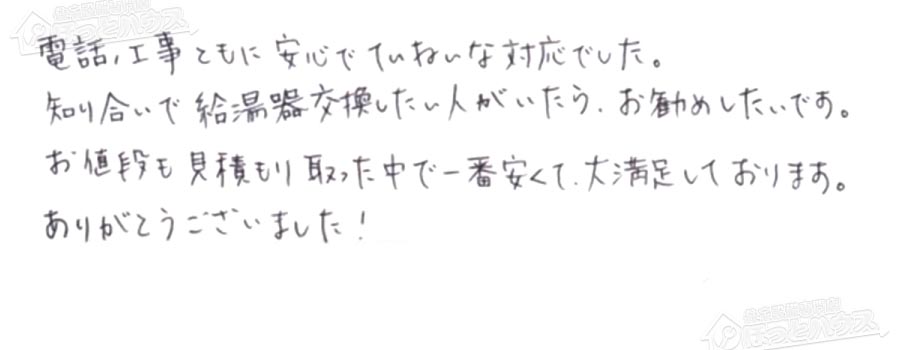 住宅設備専門店
ほっとハウス
電話,工事ともに安心でていねいな対応でした。
知り合いで給湯器交換したい人がいたら、お勧めしたいです。
お値段も見積もり取った中で一番安くて、大満足しております。
ありがとうございました!
ほっとハウス